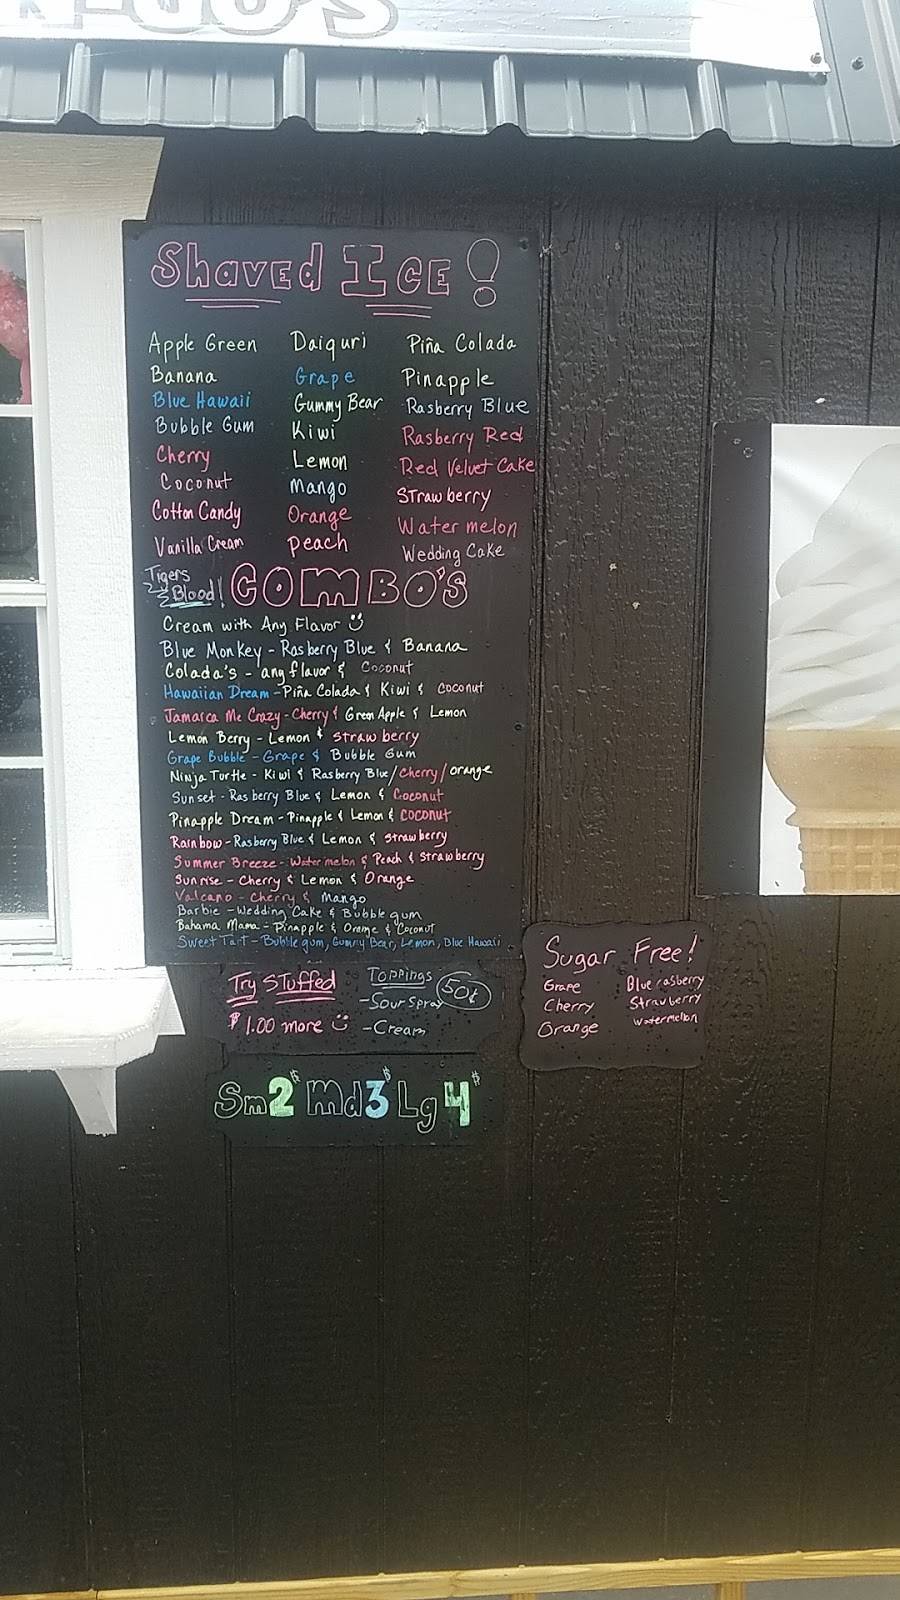 Shaved Ice!
Apple Green
Banana
Blue Hawaii
Bubble Gum
Cherry
Coconut
Cotton Candy
Vanilla Cream
Daiquri
Grape
Gummy Bear
Kiwi
Lemon
Mango
Orange
Peach
Piña Colada
Pinapple
Rasberry Blue
Rasberry Red
Red Velvet Cake
Strawberry
Watermelon
Wedding Cake
Tigers
Blood!
COMBO'S
Cream with Any Flavor
Blue Monkey - Rasberry Blue & Banana
Colada's - any flavor & Coconut
Hawaiian Dream - Piña Colada & Kiwi & Coconut
Jamaica Me Crazy - Cherry & Green Apple & Lemon
Lemon Berry - Lemon & Strawberry
Grape Bubble - Grape & Bubble Gum
Ninja Turtle - Kiwi & Rasberry Blue/Cherry/orange
Sunset - Rasberry Blue & Lemon & Coconut
Pinapple Dream - Pinapple & Lemon & Coconut
Rainbow - Rasberry Blue & Lemon & Strawberry
Summer Breeze - Watermelon & Peach & Strawberry
Sunrise - Cherry & Lemon & Orange
Valcano - Cherry & Mango
Barbie - Wedding Cake & Bubble gum
Bahama Mama - Pinapple & Orange & Coconut
Sweet Tart - Bubble gum, Gummy Bear, Lemon, Blue Hawaii
Try Stuffed
$1.00 more
Toppings
50¢
- Sour Spray
- Cream
Sugar Free!
Grape
Cherry
Orange
Blue rasberry
Strawberry
Watermelon
Sm 2$ Md 3$ Lg 4$